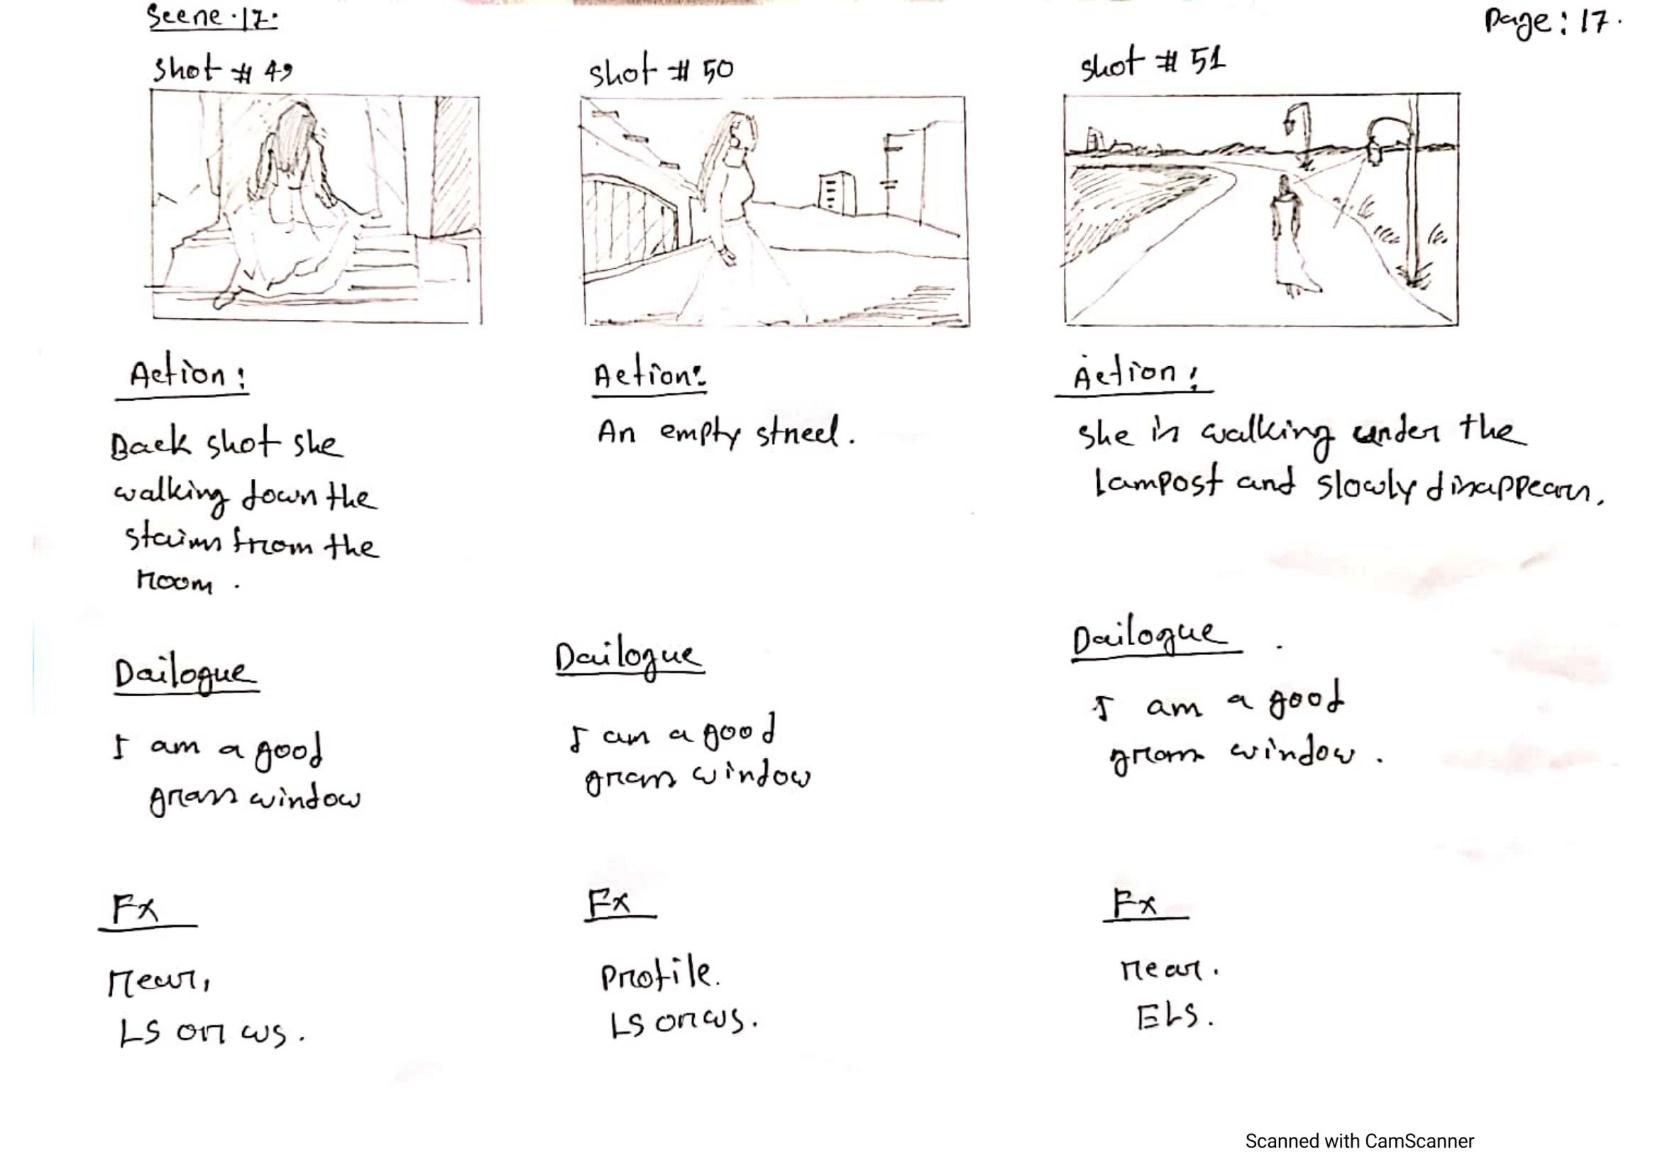 Scene-17.
Page: 17.
Shot # 49
Action:
Back shot she
walking down the
stairs from the
room.
Dailogue
I am a good
grass window
Fx
rear,
LS or ws.
Shot # 50
Action:
An empty street.
Dailogue
I am a good
grass window
Fx
Profile.
LS or ws.
Shot # 51
Action:
She is walking under the
lampost and slowly disappears.
Dailogue
I am a good
grass window.
Fx
rear.
ELS.
Scanned with CamScanner